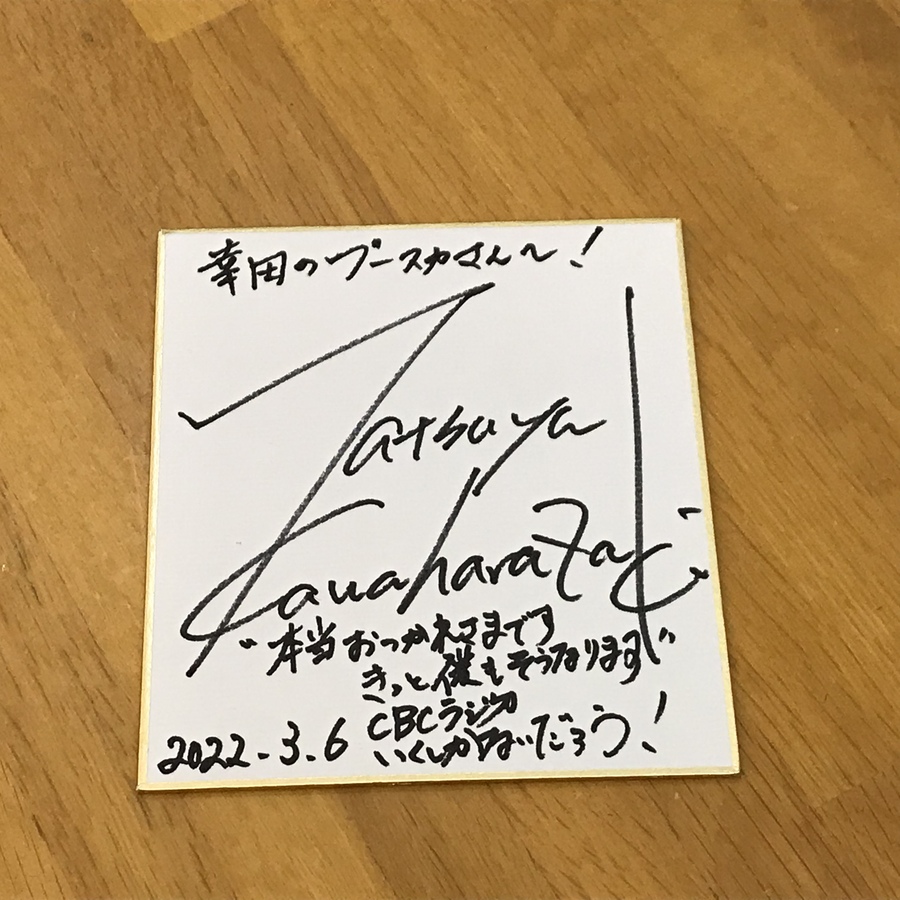 幸田のブースカさんへ!
Tatsuya
Kawaharazaki
"本当おつかれさまです
きっと、僕もそうなります"
CBCラジオ
2022.3.6 いくしかないだろう!